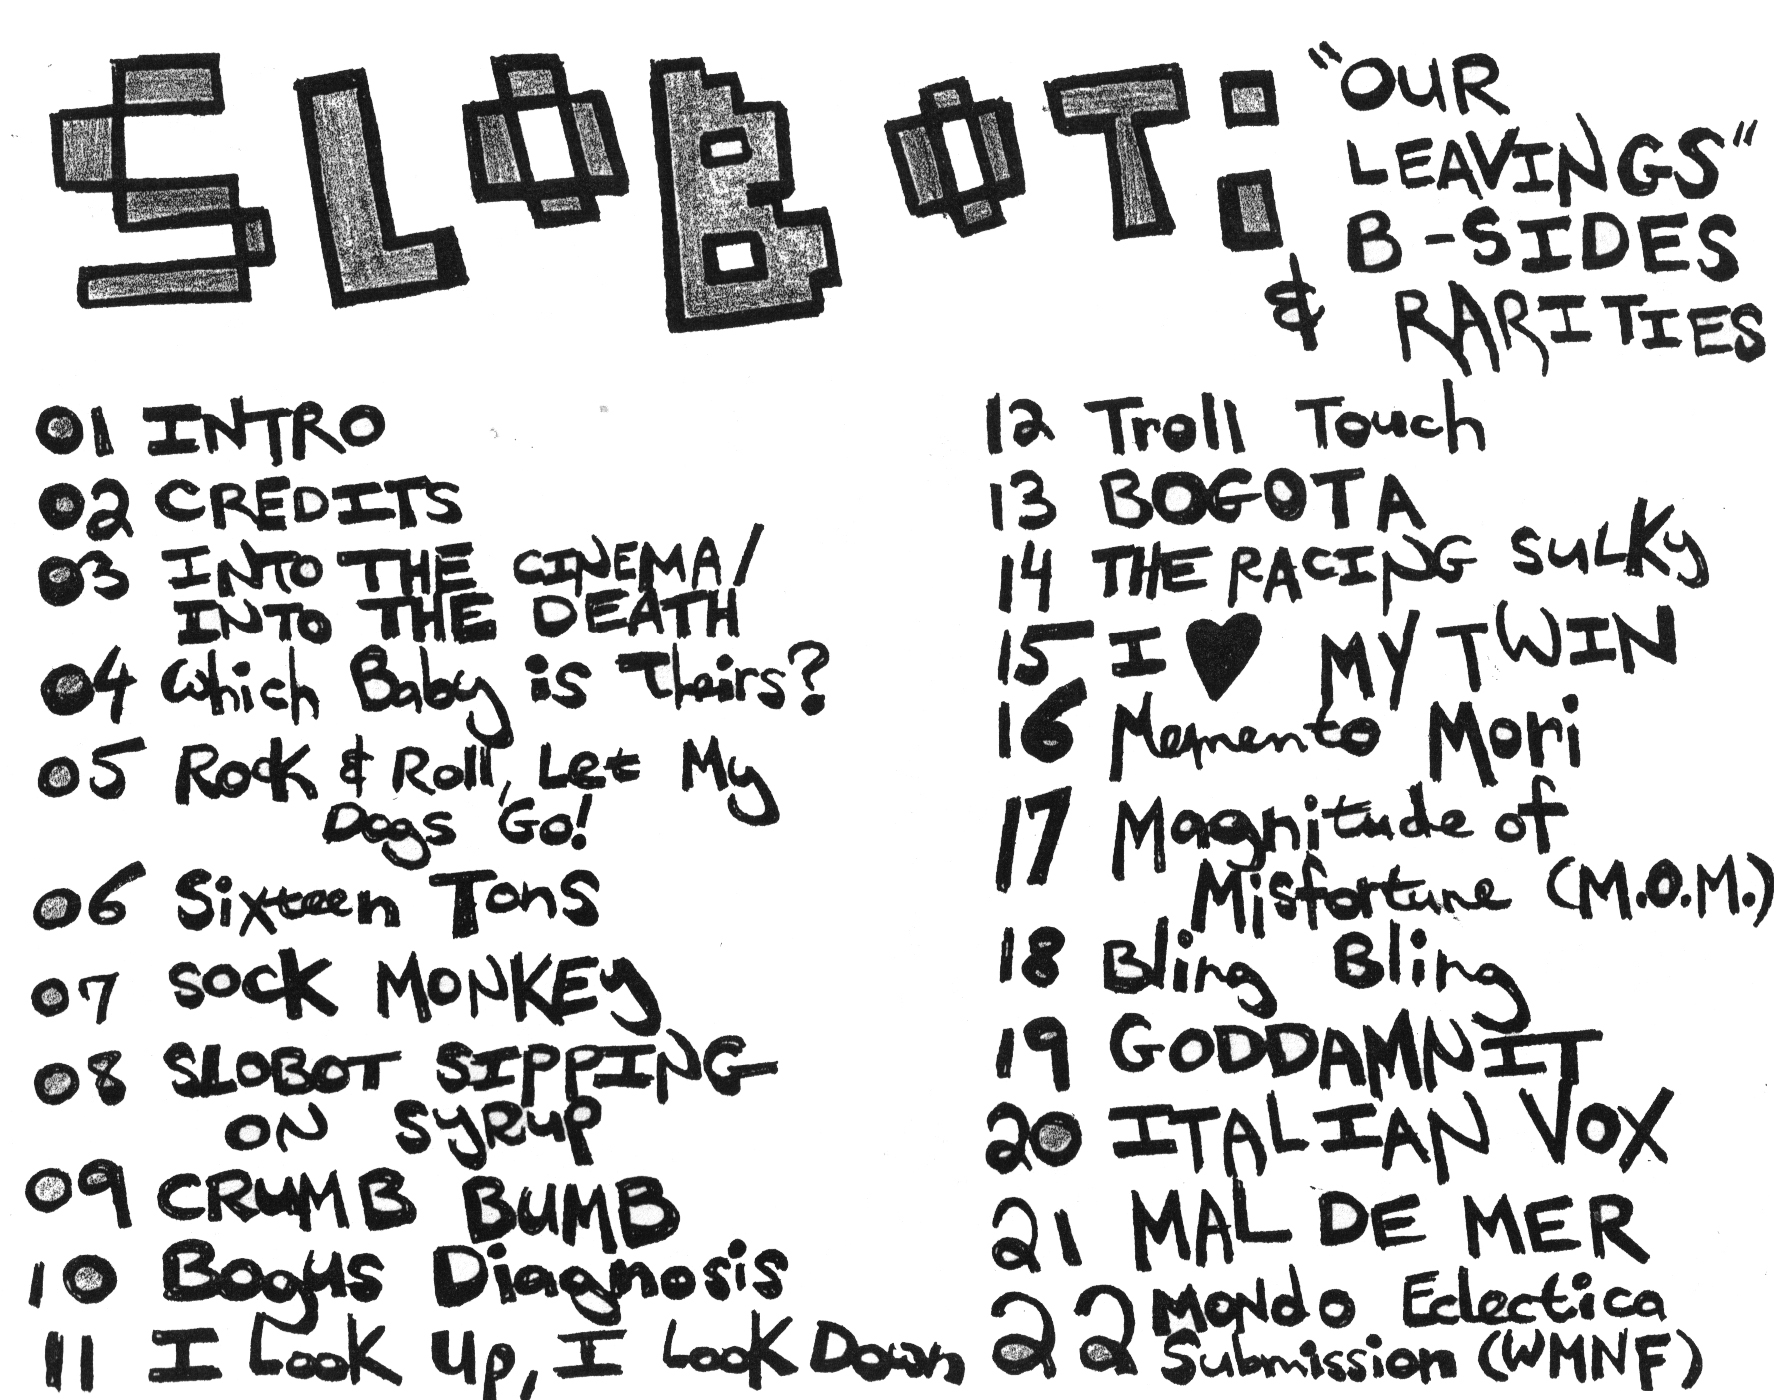 SLOBOT:
"OUR
LEAVINGS"
B-SIDES
& RARITIES
01 INTRO
02 CREDITS
03 INTO THE CINEMA/
INTO THE DEATH
04 Which Baby is Theirs?
05 Rock & Roll, Let My
Dogs Go!
06 Sixteen Tons
07 SOCK MONKEY
08 SLOBOT SIPPING
ON SYRUP
09 CRUMB BUMB
10 Bogus Diagnosis
11 I Look Up, I Look Down
12 Troll Touch
13 BOGOTA
14 THE RACING SULKY
15 I ♥ MY TWIN
16 Memento Mori
17 Magnitude of
Misfortune (M.O.M.)
18 Bling Bling
19 GODDAMNIT
20 ITALIAN VOX
21 MAL DE MER
22 MONDO Eclectica
Submission (WMNF)